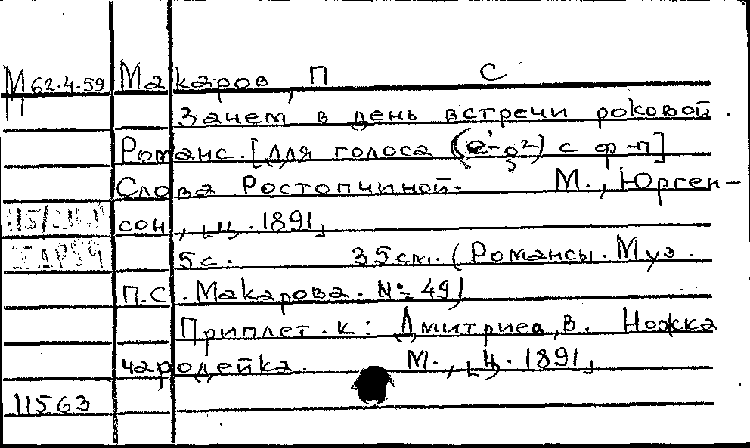 М 62.4.59 Макаров, П С
Зачем в день встречи роковой.
Романс. [Для голоса (e¹-g²) с ф-п]
Слова Ростопчиной. М., Юрген-
сон, ц. 1891,
5с. 35см. (Романсы. Муз.
П.С. Макарова. № 49)
Приплет. к: Дмитриев, В. Ножка
чародейка. М., ц. 1891,
11563